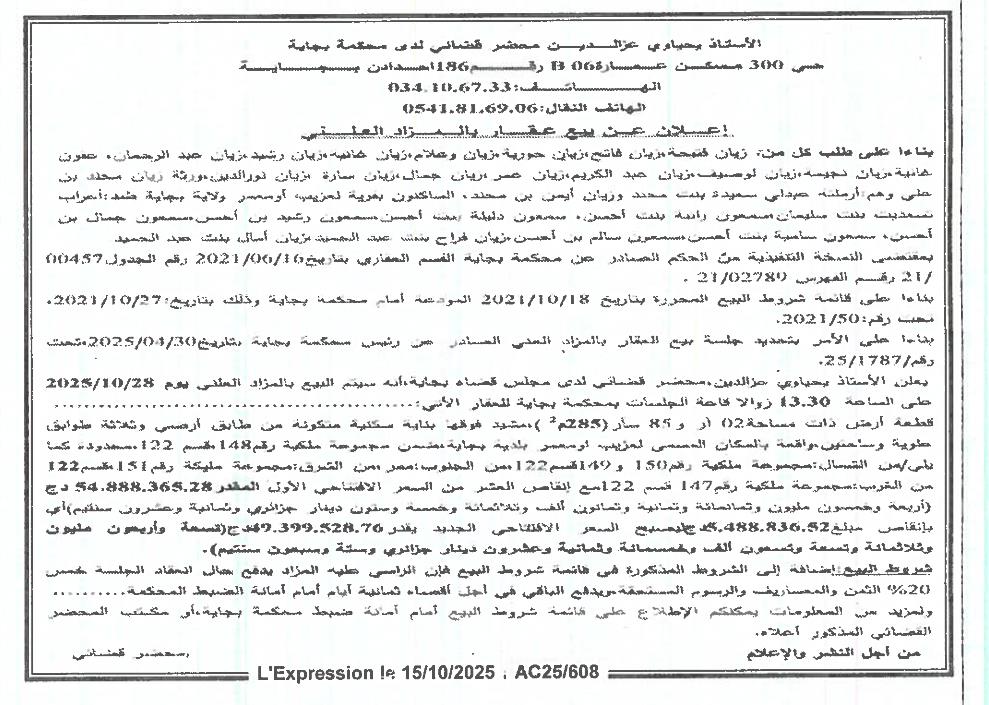 الأستاذ يحياوي عزالديـن محضر قضائي لدى محكمة بجاية
حـي 300 مسكـن عـمـارة B 06 رقــم 186 احدادن بـجـايـة
الهــاتــف:034.10.67.33
الهاتف النقال:0541.81.69.06
إعـلان عـن بيع عـقـار بالـمـزاد العلـنـي
بناءا على طلب كل من: زيان فتيحة،زيان فاتح،زيان حورية،زيان وعلام،زيان غانية،زيان رشيد،زيان عبد الرحمان، عفون
غانية،زيان نجيمة،زيان لوصيف،زيان عبد الكريم،زيان عمر،زيان جمال،زيان سارة ،زيان نورالدين،ورثة زيان محند بن
علي وهم:أرملته عبدلي سعيدة بنت محند وزيان أيمن بن محند، الساكنون بقرية لعزيب، أوسمعر ولاية بجاية ضد:أعراب
تسعديت بنت سليمان،سمعون رانية بنت أحسن، سمعون دليلة بنت أحسن،سمعون رشيد بن أحسن،سمعون جمال بن
أحسن، سمعون سامية بنت أحسن،سمعون سالم بن أحسن،زيان فراح بنت عبد الحميد،زيان أمال بنت عبد الحميد
بمقتضى النسخة التنفيذية من الحكم الصادر عن محكمة بجاية القسم العقاري بتاريخ 2021/06/16 رقم الجدول 00457
/21 رقـم الفهرس 21/02789 .
بناءا على قائمة شروط البيع المحررة بتاريخ 2021/10/18 المودعة أمام محكمة بجاية وذلك بتاريخ:2021/10/27،
تحت رقم:2021/50.
بناءا على الأمر بتحديد جلسة بيع العقار بالمزاد العلني الصادر عن رئيس محكمة بجاية بتاريخ 2025/04/30،تحت
رقم/25/1787.
يعلن الأستاذ يحياوي عزالدين،محضر قضائي لدى مجلس قضاء بجاية،أنه سيتم البيع بالمزاد العلني يوم 2025/10/28
على الساعة 13.30 زوالا قاعة الجلسات بمحكمة بجاية للعقار الأتي:
قطعة أرض ذات مساحة 02 آر و 85 سآر (285م²)،مشيد فوقها بناية سكنية متكونة من طابق أرضي وثلاثة طوابق
علوية وساحتين،واقعة بالمكان المسمى لعزيب اوسمعر بلدية بجاية،ضمن مجموعة ملكية رقم 148،قسم 122،محدودة كما
يلي/من الشمال:مجموعة ملكية رقم 150 و 149 قسم 122،من الجنوب:ممر،من الشرق:مجموعة مليكة رقم 151،قسم 122
من الغرب:مجموعة ملكية رقم 147 قسم 122 مع إنقاص العشر من السعر الافتتاحي الأول المقدر 54.888.365.28 دج
(أربعة وخمسون مليون وثمانمائة وثمانية وثمانون ألف وثلاثمائة وخمسة وستون دينار جزائري وثمانية وعشرون سنتيم)أي
بإنقاص مبلغ 5.488.836.52دج ليصبح السعر الافتتاحي الجديد يقدر 49.399.528.76دج(تسعة وأربعون مليون
وثلاثمائة وتسعة وتسعون ألف وخمسمائة وثمانية وعشرون دينار جزائري وستة وسبعون سنتيم).
شروط البيع:إضافة إلى الشروط المذكورة في قائمة شروط البيع فإن الراسي عليه المزاد يدفع حال انعقاد الجلسة خمس
20% الثمن والمصاريف والرسوم المستحقة،ويدفع الباقي في أجل أقصاه ثمانية أيام أمام أمانة الضبط المحكمة..........
ولمزيد من المعلومات يمكنكم الإطلاع على قائمة شروط البيع أمام أمانة ضبط محكمة بجاية،أو مكتب المحضر
القضائي المذكور أعلاه.
من أجل النشر والإعلام
محضر قضائي
L'Expression le 15/10/2025 : AC25/608